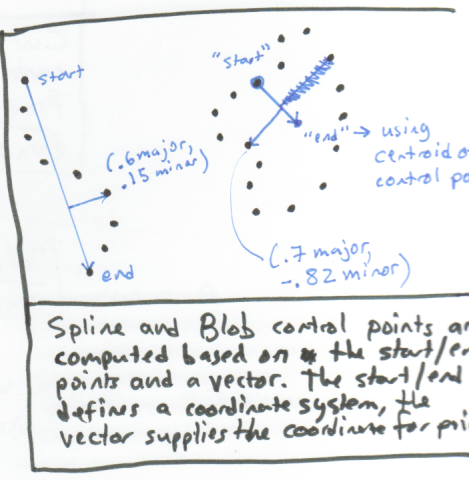 start
(.6 major,
.15 minor)
end
"start"
"end" → using
centroid of
control po
(.7 major,
-.82 minor)
Spline and Blob control points ar
computed based on the start/en
points and a vector. The start/end
defines a coordinate system, the
vector supplies the coordinate for poin